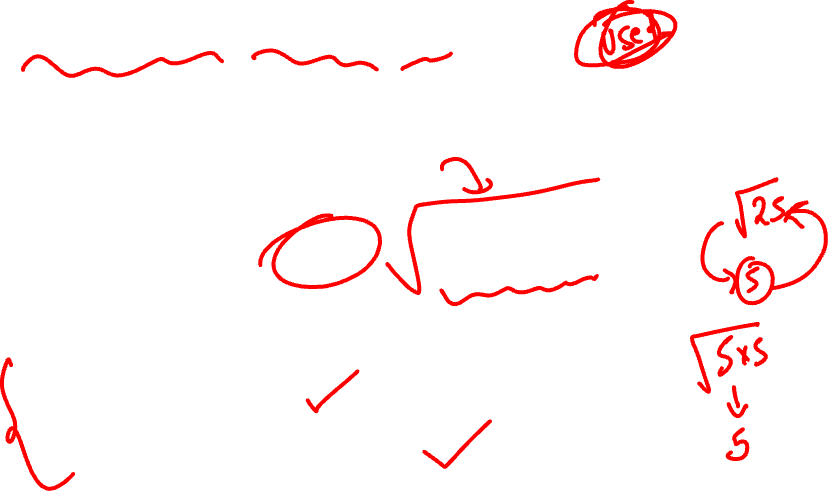 User
√25
5
√5×5
↓
5